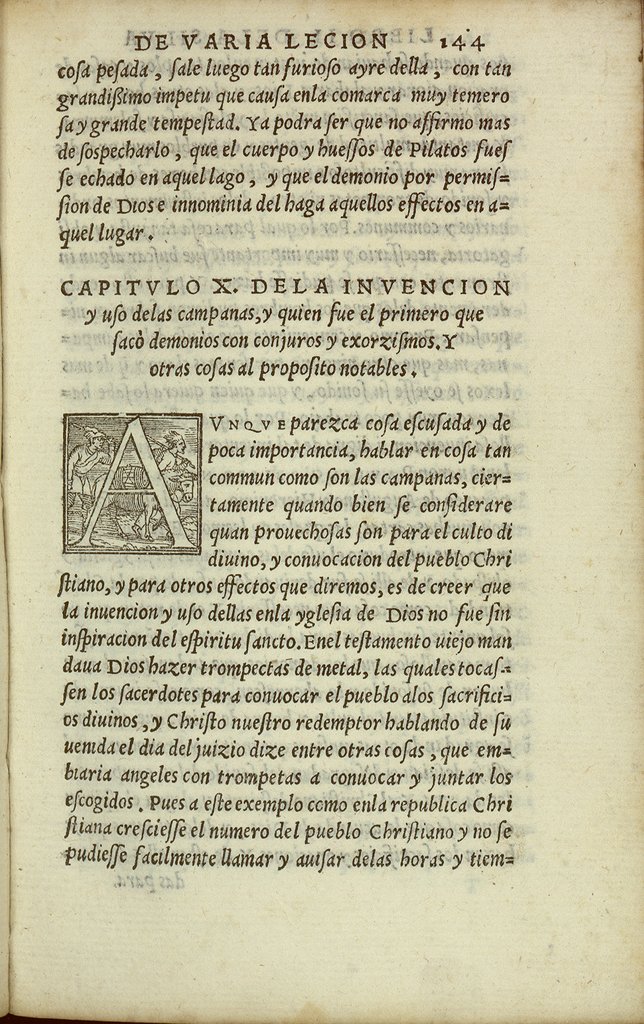 DE VARIA LECION 144
cosa pesada, sale luego tan furioso ayre della, con tan
grandißimo impetu que causa enla comarca muy temero
sa y grande tempestad. Ya podra ser que no affirmo mas
de sospecharlo, que el cuerpo y huessos de Pilatos fues
se echado en aquel lago, y que el demonio por permis=
sion de Dios e innominia del haga aquellos effectos en a=
quel lugar.
CAPITVLO X. DE LA INVENCION
y uso delas campanas, y quien fue el primero que
sacò demonios con conjuros y exorzismos. Y
otras cosas al proposito notables.
AVNQVE parezca cosa escusada y de
poca importancia, hablar en cosa tan
commun como son las campanas, cier=
tamente quando bien se considerare
quan prouechosas son para el culto di
diuino, y conuocacion del pueblo Chri
stiano, y para otros effectos que diremos, es de creer que
la inuencion y uso dellas enla yglesia de Dios no fue sin
inspiracion del espiritu sancto. Enel testamento uiejo man
daua Dios hazer trompectas de metal, las quales tocas=
sen los sacerdotes para conuocar el pueblo alos sacrifici=
os diuinos, y Christo nuestro redemptor hablando de su
uenida el dia del juizio dize entre otras cosas, que em=
biaria angeles con trompetas a conuocar y juntar los
escogidos. Pues a este exemplo como enla republica Chri
stiana cresciesse el numero del pueblo Christiano y no se
pudiesse facilmente llamar y auisar delas horas y tiem=